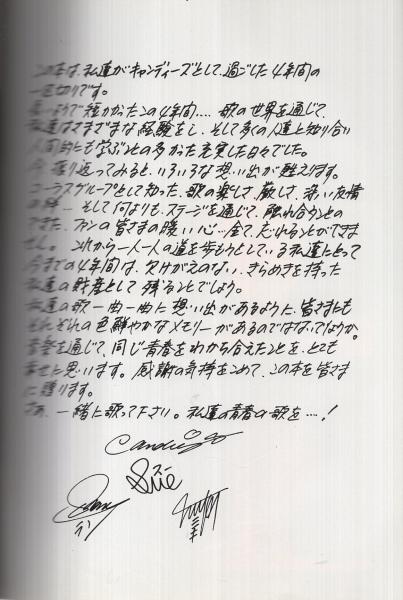 この本は、私達がキャンディーズとして、過ごした4年間の
一区切りです。
長いようで短かったこの4年間....歌の世界を通じて、
私達はさまざまな経験をし、そして多くの人達と知り合い
人間的にも学ぶことの多かった充実した日々でした。
今、振り返ってみると、いろいろな想い出が甦えります。
コーラスグループとして知った、歌の楽しさ、厳しさ、深い友情
の絆... そして何よりも、ステージを通じて、触れ合うことの
できた、ファンの皆さまの暖い心...全て、忘れることができま
せん。これから一人一人の道を歩もうとしている私達にとって
今までの4年間は、欠けがえのない、きらめきを持った
私達の財産として残ることでしょう。
私達の歌一曲一曲に想い出があるように、皆さまにも
それぞれの色鮮やかなメモリーがあるのではないでしょうか。
音楽を通じて、同じ青春をわかち合えたことを、とても
幸せに思います。感謝の気持をこめて、この本を皆さま
に贈ります。
さあ、一緒に歌って下さい。私達の青春の歌を....!
Candies
スー
Sue
ラン
ミキ